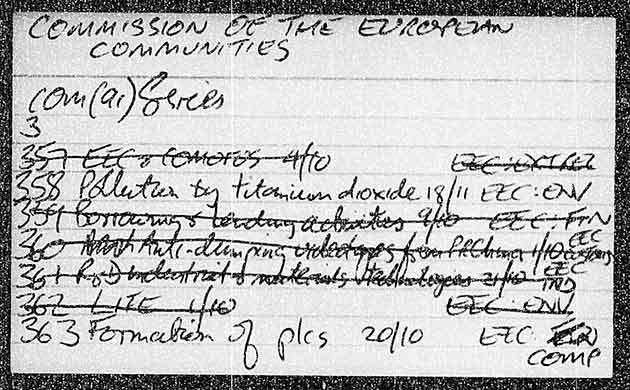 COMMISSION OF THE EUROPEAN
COMMUNITIES
COM(91) Series
3
357 EEC & COMOROS 4/10 EEC:EXTREL
358 Pollution by titanium dioxide 18/11 EEC:ENV
359 Borrowing & lending activities 9/10 EEC:FIN
360 Anti-dumping videotapes from PR China 1/10 EEC
361 R&D industrial & materials technologies 21/10 EEC
IND
362 LIFE 1/10 EEC:ENV
363 Formation of plcs 20/10 EEC
COMP